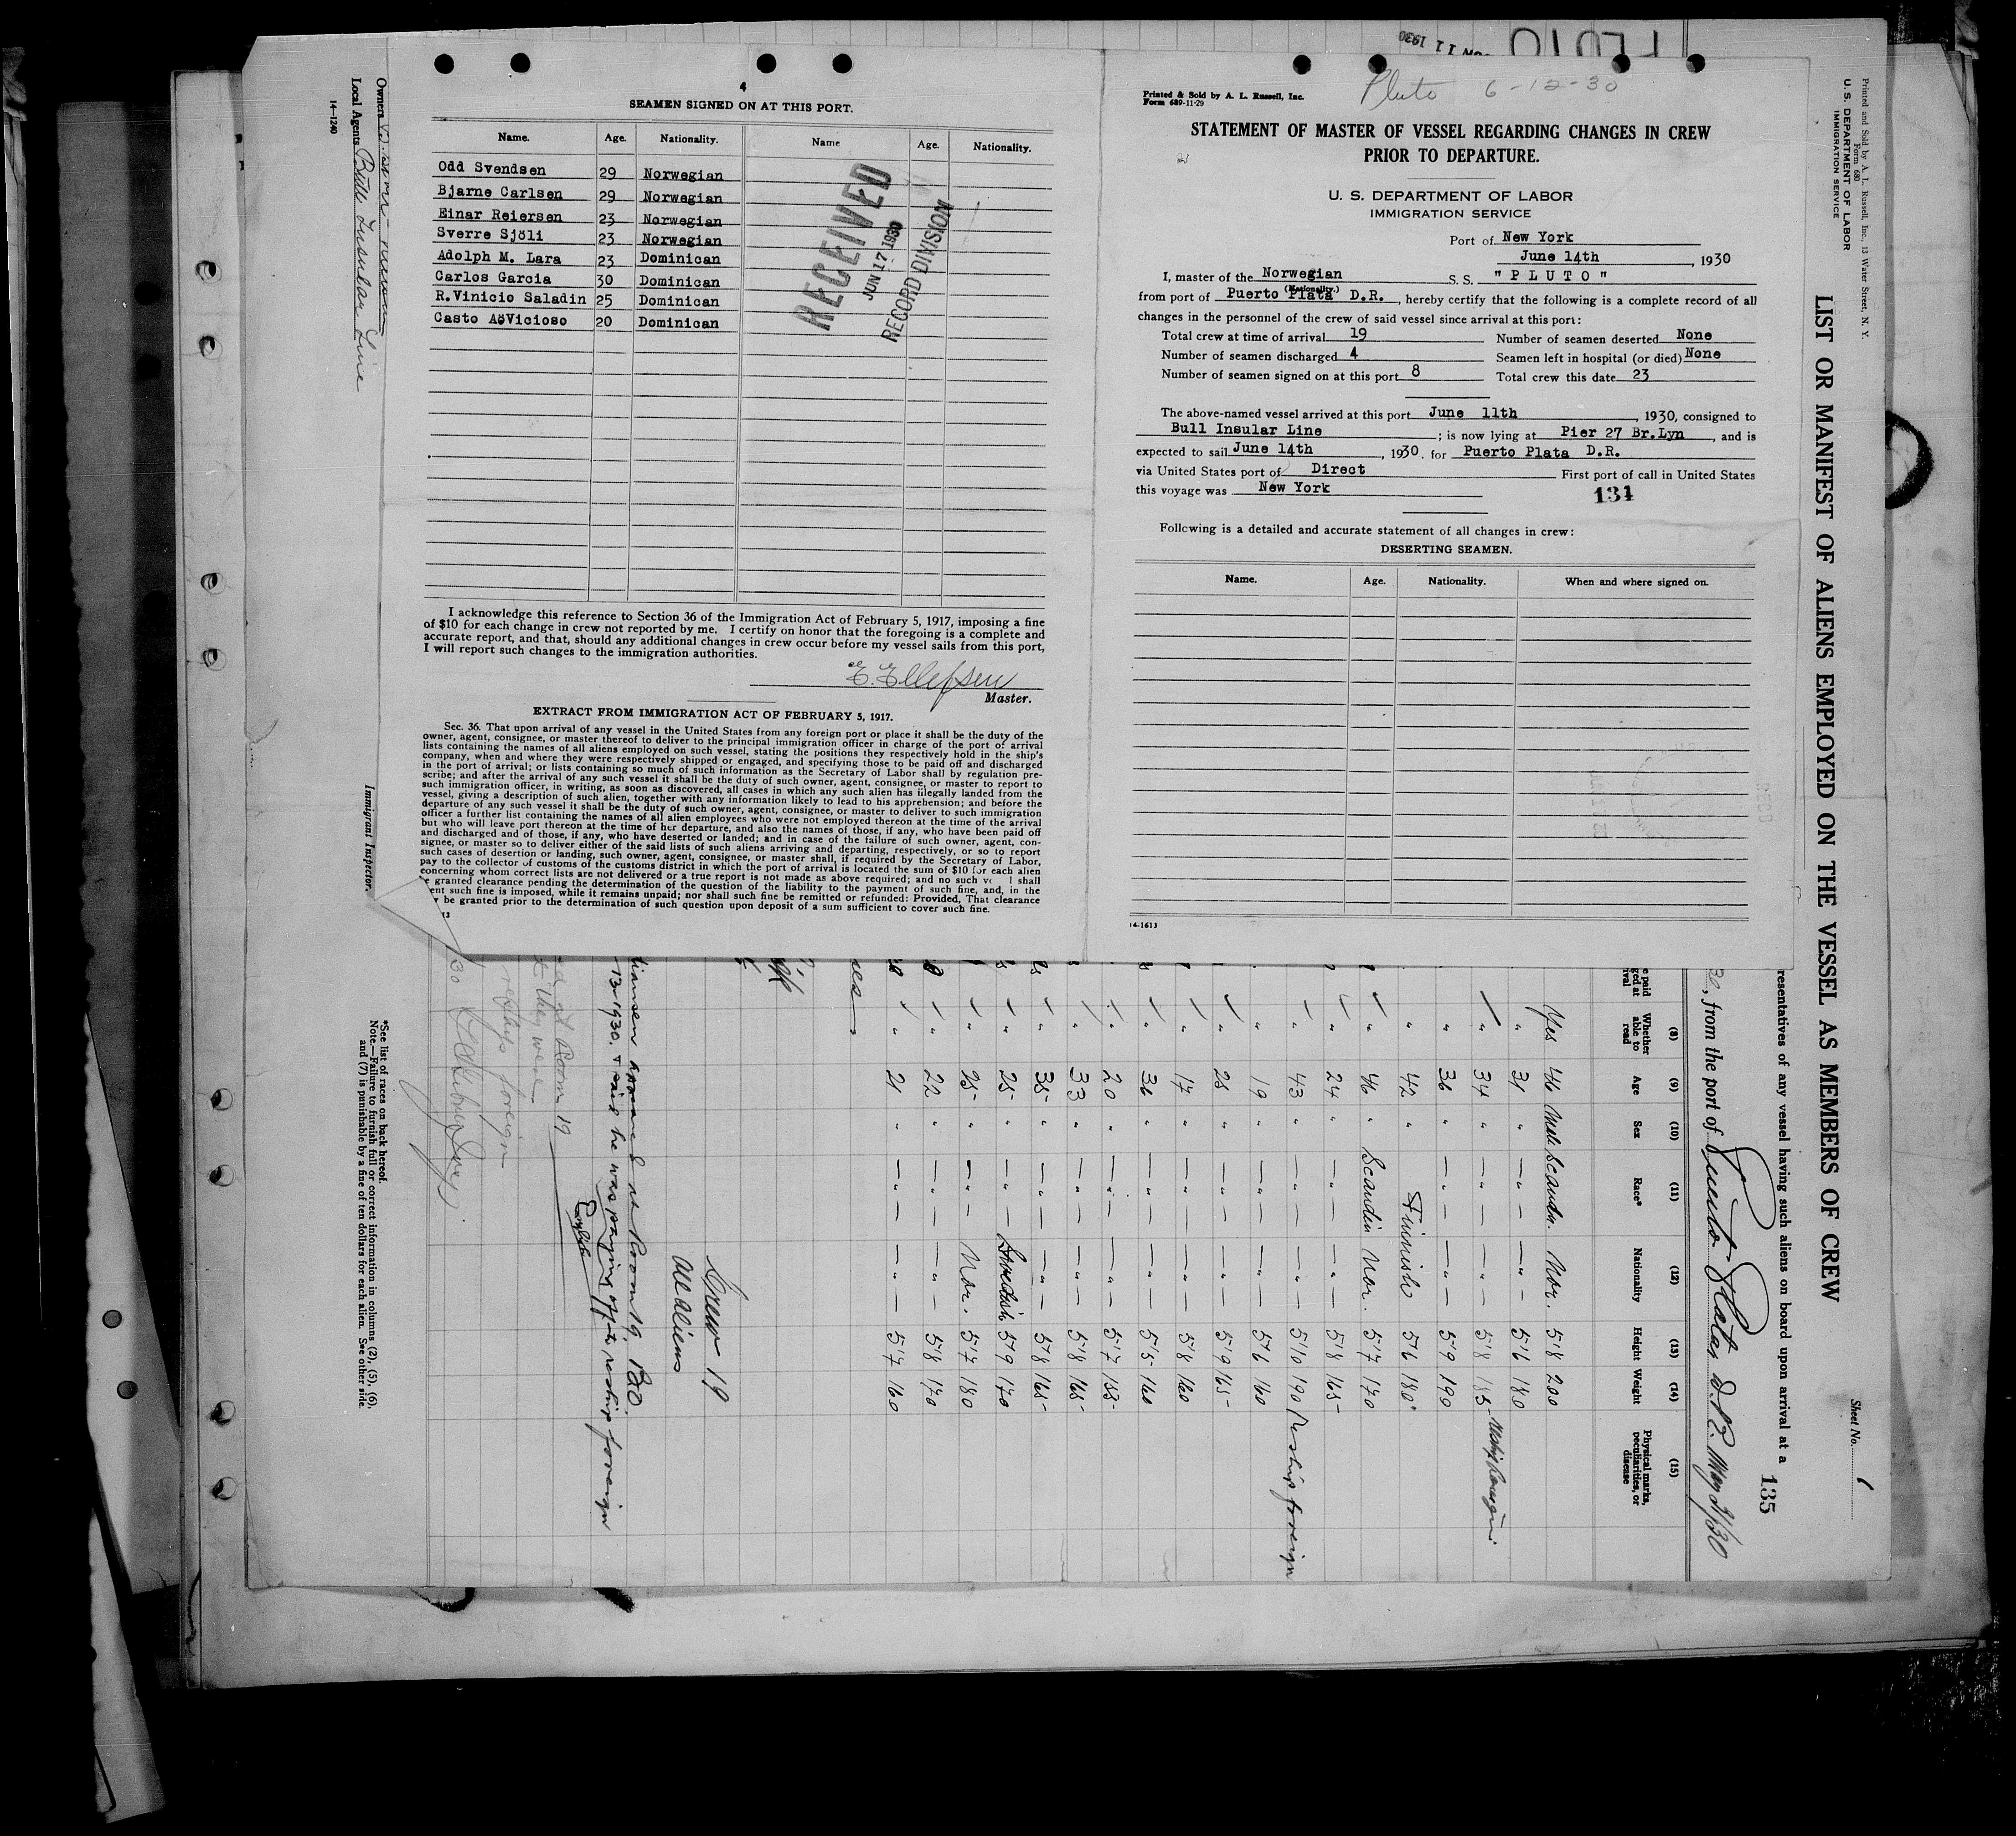 4
SEAMEN SIGNED ON AT THIS PORT.
Name. Age. Nationality. Name Age. Nationality.
Odd Svendsen 29 Norwegian
Bjarne Carlsen 29 Norwegian
Einar Reiersen 23 Norwegian
Sverre Sjöli 23 Norwegian
Adolph M. Lara 23 Dominican
Carlos Garcia 30 Dominican
R.Vinicio Saladin 25 Dominican
Casto A Vicioso 20 Dominican
RECEIVED
JUN 17 1930
RECORD DIVISION
I acknowledge this reference to Section 36 of the Immigration Act of February 5, 1917, imposing a fine
of $10 for each change in crew not reported by me. I certify on honor that the foregoing is a complete and
accurate report, and that, should any additional changes in crew occur before my vessel sails from this port,
I will report such changes to the immigration authorities.
E. Ellefsen
Master.
EXTRACT FROM IMMIGRATION ACT OF FEBRUARY 5, 1917.
Sec. 36. That upon arrival of any vessel in the United States from any foreign port or place it shall be the duty of the
owner, agent, consignee, or master thereof to deliver to the principal immigration officer in charge of the port of arrival
lists containing the names of all aliens employed on such vessel, stating the positions they respectively hold in the ship's
company, when and where they were respectively shipped or engaged, and specifying those to be paid off and discharged
in the port of arrival; or lists containing so much of such information as the Secretary of Labor shall by regulation pre-
scribe; and after the arrival of any such vessel it shall be the duty of such owner, agent, consignee, or master to report to
such immigration officer, in writing, as soon as discovered, all cases in which any such alien has illegally landed from the
vessel, giving a description of such alien, together with any information likely to lead to his apprehension; and before the
departure of any such vessel it shall be the duty of such owner, agent, consignee, or master to deliver to such immigration
officer a further list containing the names of all alien employees who were not employed thereon at the time of the arrival
but who will leave port thereon at the time of her departure, and also the names of those, if any, who have been paid off
and discharged and of those, if any, who have deserted or landed; and in case of the failure of such owner, agent, con-
signee, or master so to deliver either of the said lists of such aliens arriving and departing, respectively, or so to report
such cases of desertion or landing, such owner, agent, consignee, or master shall, if required by the Secretary of Labor,
pay to the collector of customs of the customs district in which the port of arrival is located the sum of $10 for each alien
concerning whom correct lists are not delivered or a true report is not made as above required; and no such ve l shall
granted clearance pending the determination of the question of the liability to the payment of such fine, and, in the
ent such fine is imposed, while it remains unpaid; nor shall such fine be remitted or refunded: Provided, That clearance
be granted prior to the determination of such question upon deposit of a sum sufficient to cover such fine.
13
Printed & Sold by A. L. Russell, Inc.
Form 689-11-29
Pluto 6-12-30
STATEMENT OF MASTER OF VESSEL REGARDING CHANGES IN CREW
PRIOR TO DEPARTURE.
U. S. DEPARTMENT OF LABOR
IMMIGRATION SERVICE
Port of New York
June 14th, 1930
I, master of the Norwegian S. S. "PLUTO"
(Nationality.)
from port of Puerto Plata D.R., hereby certify that the following is a complete record of all
changes in the personnel of the crew of said vessel since arrival at this port:
Total crew at time of arrival 19 Number of seamen deserted None
Number of seamen discharged 4 Seamen left in hospital (or died) None
Number of seamen signed on at this port 8 Total crew this date 23
The above-named vessel arrived at this port June 11th, 1930, consigned to
Bull Insular Line; is now lying at Pier 27 Br.Lyn, and is
expected to sail June 14th, 1930, for Puerto Plata D.R.
via United States port of Direct First port of call in United States
this voyage was New York
134
Following is a detailed and accurate statement of all changes in crew:
DESERTING SEAMEN.
Name. Age. Nationality. When and where signed on.
14-1613
PLUTO
JUN 11 1930
Printed and Sold by A. L. Russell, Inc., 13 Water Street, N. Y.
Form 680
U. S. DEPARTMENT OF LABOR
IMMIGRATION SERVICE
Sheet No. 1
LIST OR MANIFEST OF ALIENS EMPLOYED ON THE VESSEL AS MEMBERS OF CREW
135
resentatives of any vessel having such aliens on board upon arrival at a
30, from the port of Puerto Plata D.R. May 31/30
(8) (9) (10) (11) (12) (13) (14) (15)
e paid
ged at
ival
Whether able to read Age Sex Race* Nationality Height Weight Physical marks, peculiarities, or disease
Yes 46 Male Scandn. Nor. 5'8 200
" 31 " — " — — " — 5'6 180
" 34 " — " — — " — 5'8 185
" 36 " — " — — " — 5'9 190
" 42 " Finnish 5'6 180
" 46 " Scandin Nor. 5'7 170
" 24 " — " — — " — 5'8 165
" 43 " — " — — " — 5'10 190 Reship foreign
" 19 " — " — — " — 5'6 160
" 25 " — " — — " — 5'9 165
" 17 " — " — — " — 5'8 160
" 36 " — " — — " — 5'5 160
" 20 " — " — — " — 5'7 155
" 33 " — " — — " — 5'8 165
" 35 " — " — — " — 5'8 165
" 25 " — " — Swedish 5'9 170
" 25 " — " — Nor. 5'7 180
" 22 " — " — — " — 5'8 170
" 21 " — " — — " — 5'7 160
Crew 19
All aliens
tiansen appeared at Room 19,
13-1930. & said he was paying off to reship foreign
at Room 19
they were
reships foreign
*See list of races on back hereof.
Note.—Failure to furnish full or correct information in columns (2), (5), (6),
and (7) is punishable by a fine of ten dollars for each alien. See other side.
Immigrant Inspector.
Owners
Local Agents Bull Insular Line
14—1240